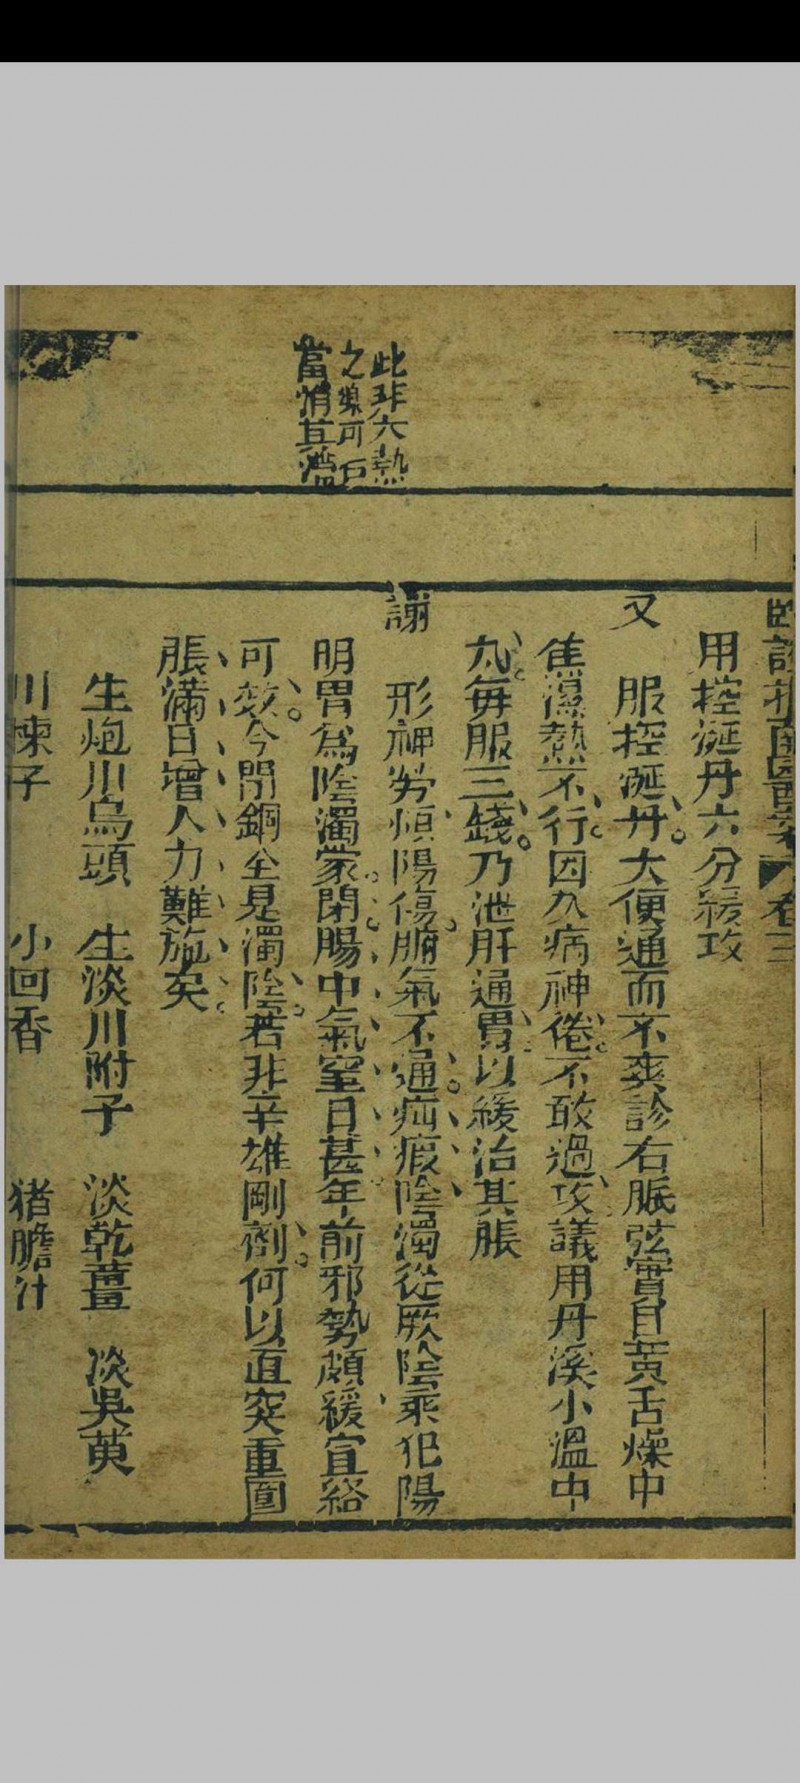 臨證指南醫案 卷三
用控涎丹六分緩攻
又
服控涎丹大便通而不爽診右脈弦實目黃舌燥中
焦濕熱不行因久病神倦不敢過攻議用丹溪小溫中
丸每服三錢乃泄肝通胃以緩治其脹
謝
形神勞煩陽傷腑氣不通疝瘕陰濁從厥陰乘犯陽
明胃為陰濁蒙閉腸中氣窒日甚年前邪勢頗緩宣絡
可效今閉錮全是濁陰若非辛雄剛劑何以直突重圍
脹滿日增人力難施矣
生炮川烏頭 生淡川附子 淡乾薑 淡吳萸
川楝子 小囘香 猪膽汁
此非大熱
之線可
當悄其